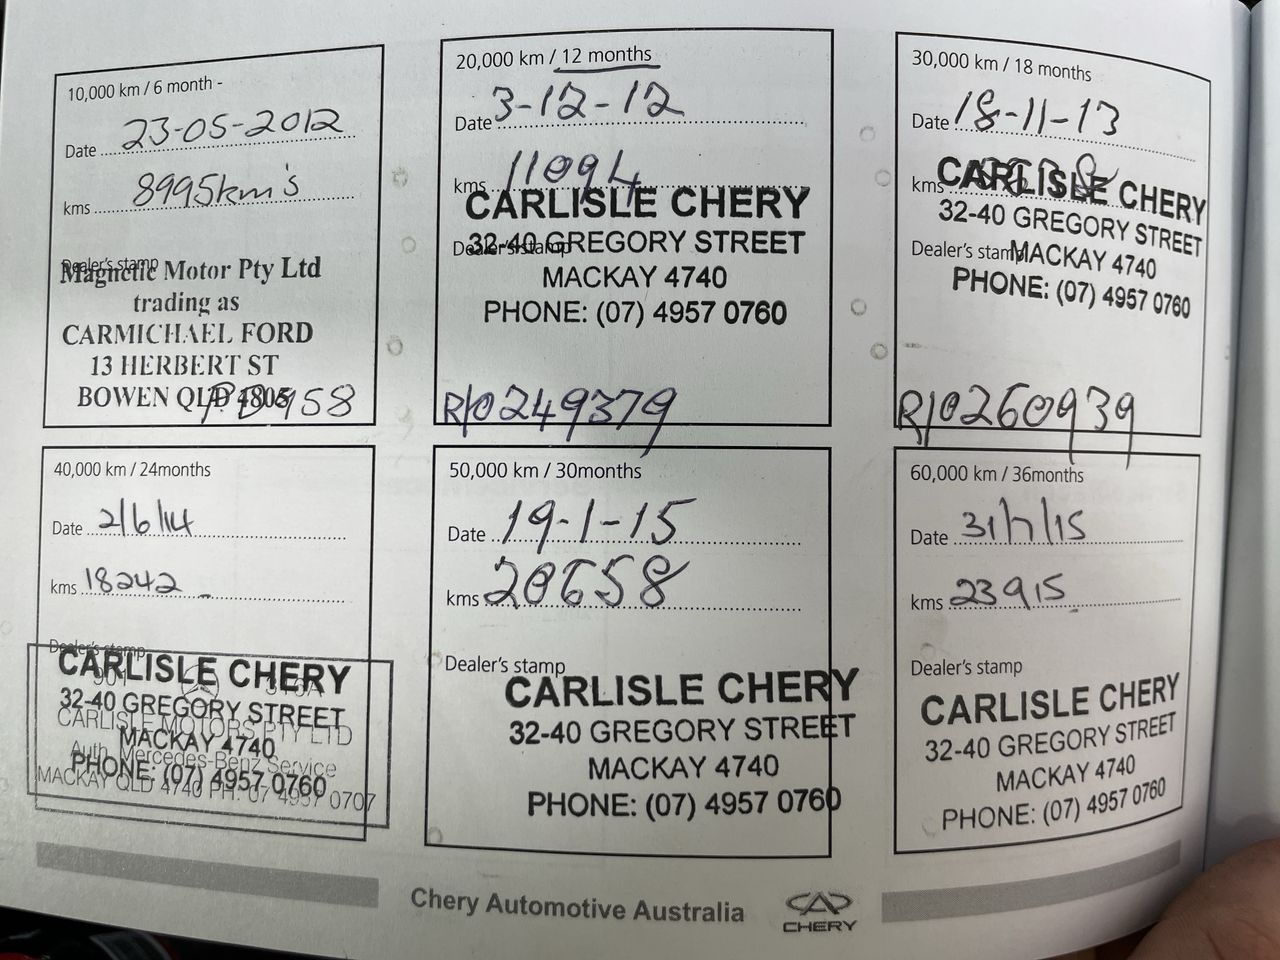 10,000 km / 6 month -
Date 23-05-2012
kms 8995km's
Dealer's stamp
Magnetic Motor Pty Ltd
trading as
CARMICHAEL FORD
13 HERBERT ST
BOWEN QLD 4805
20,000 km / 12 months
Date 3-12-12
kms 11094
CARLISLE CHERY
Dealer's stamp
32-40 GREGORY STREET
MACKAY 4740
PHONE: (07) 4957 0760
R/0249379
30,000 km / 18 months
Date 18-11-13
kms
CARLISLE CHERY
32-40 GREGORY STREET
Dealer's stamp
MACKAY 4740
PHONE: (07) 4957 0760
R/0260939
40,000 km / 24months
Date 2/6/14
kms 18242
Dealer's stamp
CARLISLE CHERY
32-40 GREGORY STREET
CARLISLE MOTORS PTY LTD
MACKAY 4740
Auth. Mercedes-Benz Service
PHONE: (07) 4957 0760
MACKAY QLD 4740 PH: 07 4957 0707
50,000 km / 30months
Date 19-1-15
kms 20658
Dealer's stamp
CARLISLE CHERY
32-40 GREGORY STREET
MACKAY 4740
PHONE: (07) 4957 0760
60,000 km / 36months
Date 31/7/15
kms 23915
Dealer's stamp
CARLISLE CHERY
32-40 GREGORY STREET
MACKAY 4740
PHONE: (07) 4957 0760
Chery Automotive Australia
CHERY